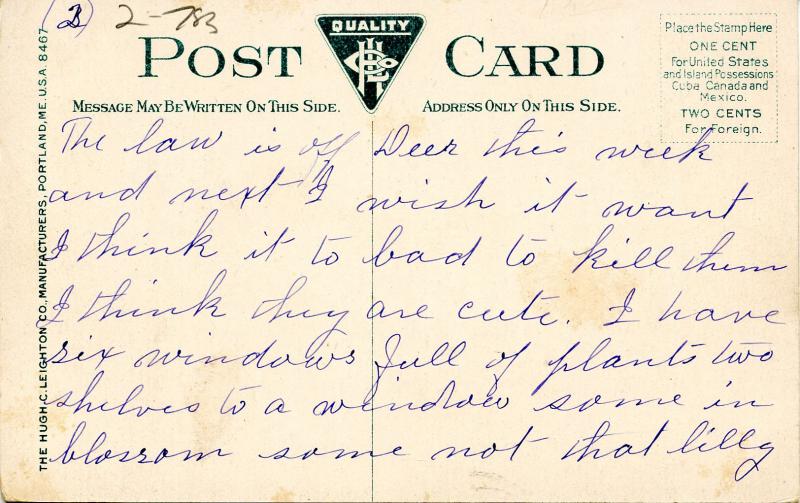 (2) 2-783
QUALITY
POST CARD
MESSAGE MAY BE WRITTEN ON THIS SIDE.
ADDRESS ONLY ON THIS SIDE.
Place the Stamp Here
ONE CENT
For United States
and Island Possessions
Cuba Canada and
Mexico.
TWO CENTS
For Foreign.
THE HUGH C. LEIGHTON CO., MANUFACTURERS, PORTLAND, ME. U.S.A. 8467
The law is off Deer this week
and next I wish it want
I think it to bad to kill them
I think they are cute. I have
six windows full of plants two
shelves to a window some in
blossom some not that lilly